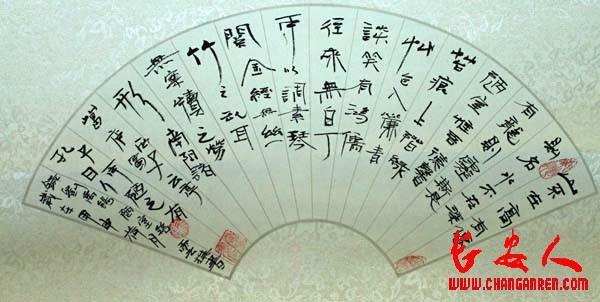 山不在高有
則名水不在深
有龍則靈斯是
陋室惟吾德馨
苔痕上階綠
艸色入簾青
談笑有鴻儒
往來無白丁
可以調素琴
閱金經無絲
竹之亂耳
無案牘之勞
形南陽諸
葛廬西蜀子雲亭
孔子曰何陋之有
劉禹錫陋室銘
甲申
长安人
WWW.CHANGANREN.COM